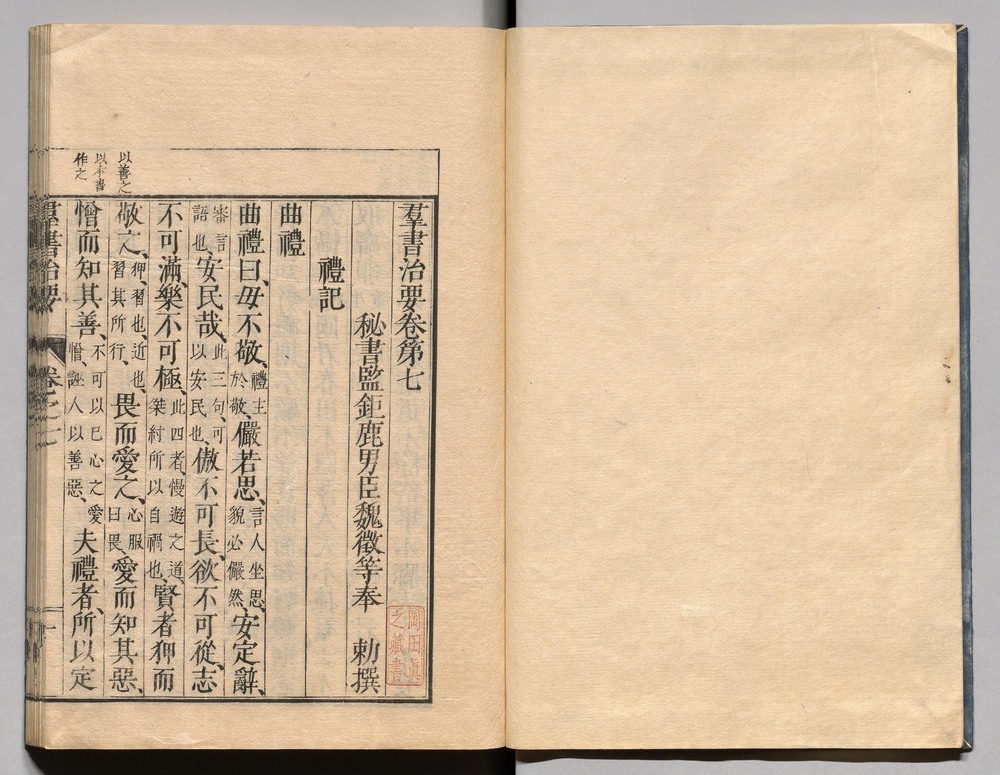 羣書治要卷第七
秘書監鉅鹿男臣魏徵等奉　勑撰
岡田眞
之藏書
禮記
曲禮
曲禮曰、毋不敬、禮主於敬、儼若思、言人坐思、貌必儼然、安定辭、
審言語也、安民哉、此三句、可以安民也、傲不可長、欲不可從、志
不可滿、樂不可極、此四者、慢遊之道、桀紂所以自禍也、賢者狎而
敬之、狎、習也、近也、習其所行、畏而愛之、心服曰畏、愛而知其惡、
憎而知其善、不可以己心之愛憎、誣人以善惡、夫禮者、所以定
以善之
以本書
作之
羣書治要　卷之七　一